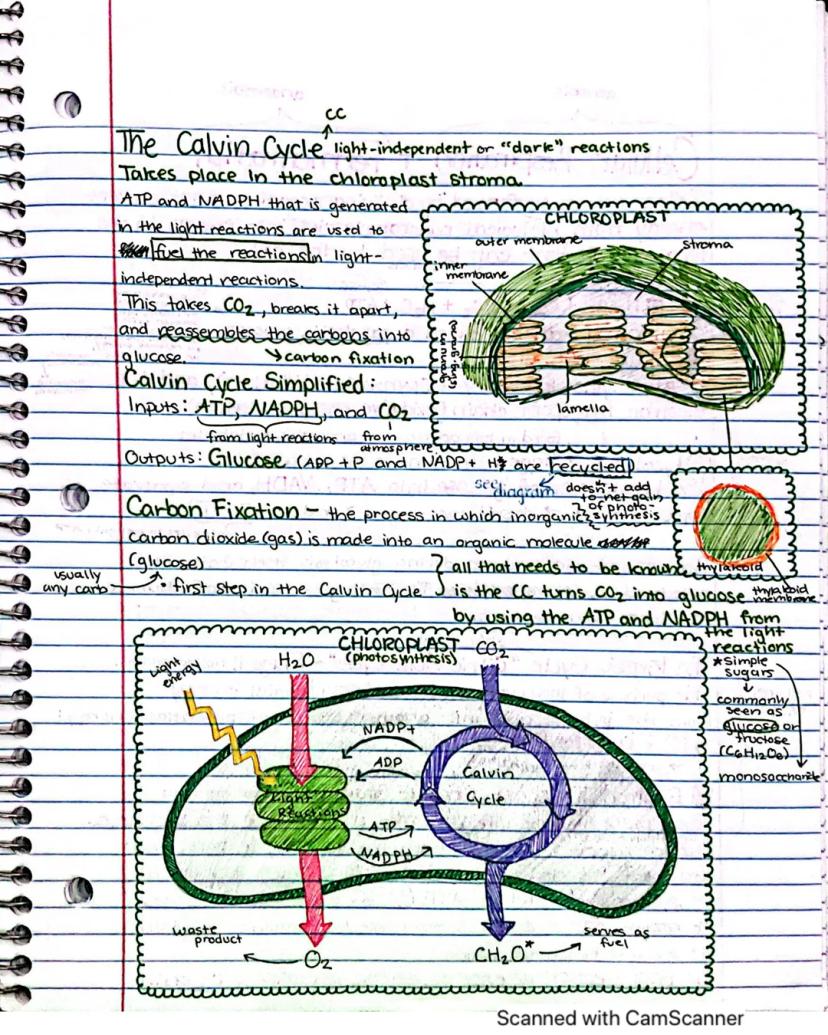 CC
The Calvin Cycle light-independent or "dark" reactions
Takes place in the chloroplast stroma.
ATP and NADPH that is generated
in the light reactions are used to
fuel the reactions in light-
independent reactions.
This takes CO₂, breaks it apart,
and reassembles the carbons into
glucose. ↘ carbon fixation
Calvin Cycle Simplified:
Inputs: ATP, NADPH, and CO₂
from light reactions
from
atmosphere
Outputs: Glucose (ADP + P and NADP+ H+ are recycled)
see
diagram
doesn't add
to net gain
of photo-
synthesis
CHLOROPLAST
outer membrane
stroma
inner
membrane
granum
lamella
thylakoid
thylakoid
membrane
Carbon Fixation - the process in which inorganic
carbon dioxide (gas) is made into an organic molecule
(glucose)
usually
any carb
• first step in the Calvin Cycle
all that needs to be known
is the CC turns CO₂ into glucose
by using the ATP and NADPH from
the light
reactions
*simple
sugars
↓
commonly
seen as
glucose or
fructose
(C₆H₁₂O₆)
monosaccharide
CHLOROPLAST
(photosynthesis)
Light
energy
H₂O
CO₂
NADP+
ADP
ATP
NADPH
Light
Reactions
Calvin
Cycle
waste
product
O₂
CH₂O*
serves as
fuel
Scanned with CamScanner